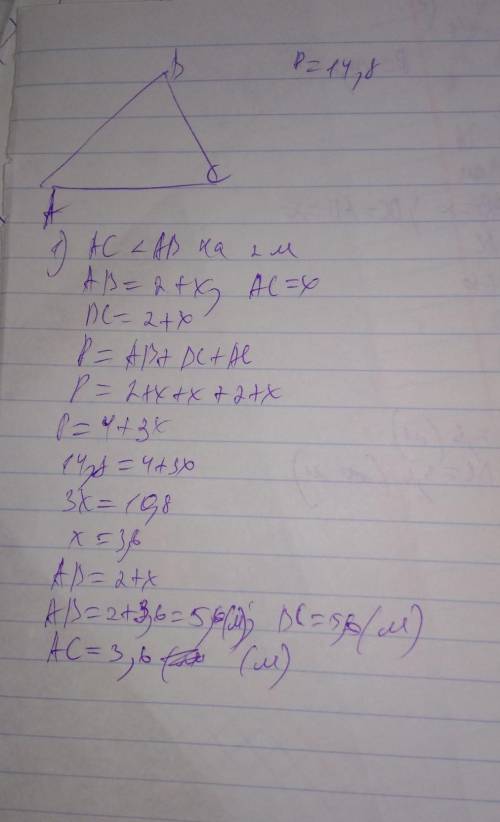 P = 14,8
B
A
C
1) AC < AB на 2 м
AB = 2 + x, AC = x
BC = 2 + x
P = AB + BC + AC
P = 2 + x + x + 2 + x
P = 4 + 3x
14,8 = 4 + 3x
3x = 10,8
x = 3,6
AB = 2 + x
AB = 2 + 3,6 = 5,6 (м); BC = 5,6 (м)
AC = 3,6 (м)